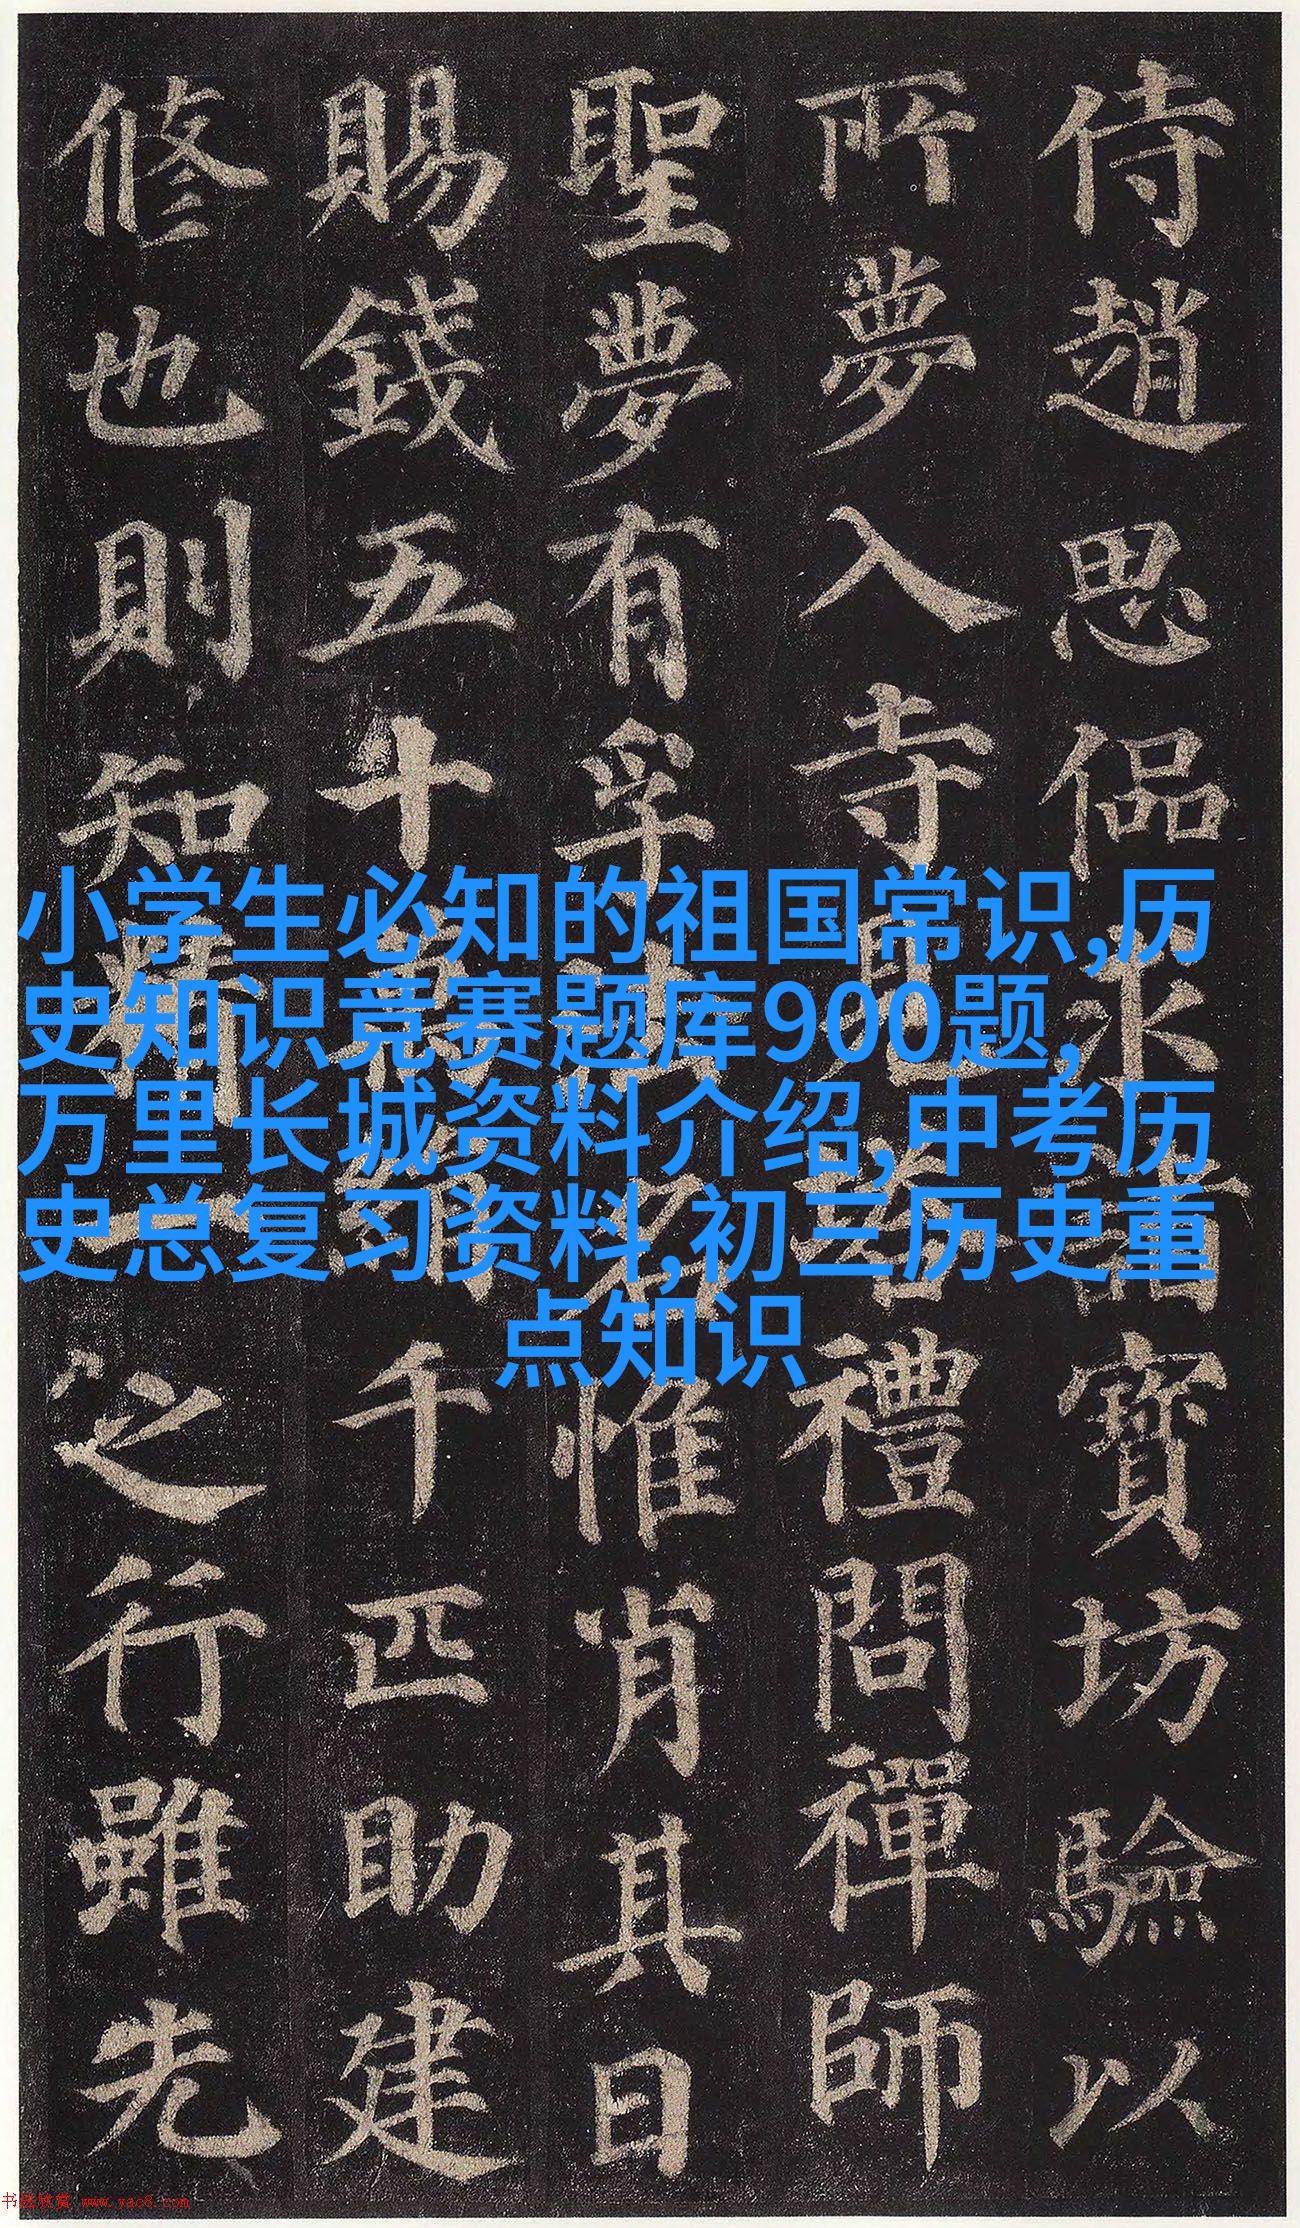 侍趙思偘求諸寶坊驗以
所夢入寺見塔禮問禪師
聖夢有孚法名惟肖其日
賜錢五十萬絹千匹助建
修也則知精一之行雖先
小学生必知的祖国常识,历
史知识竞赛题库900题,
万里长城资料介绍,中考历
史总复习资料,初三历史重
点知识
书法欣赏 www.yac8.com